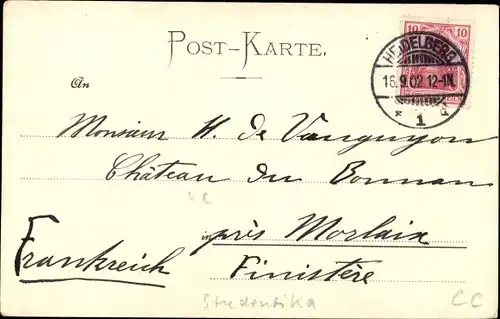 POST-KARTE.
10 10
HEIDELBERG
16.9.02 12-1N.
* 1 d
An
Monsieur H. de Vauguyon
Château du Bonnan
VC
in près Morlaix
Frankreich
Finistère
Studentika
CC